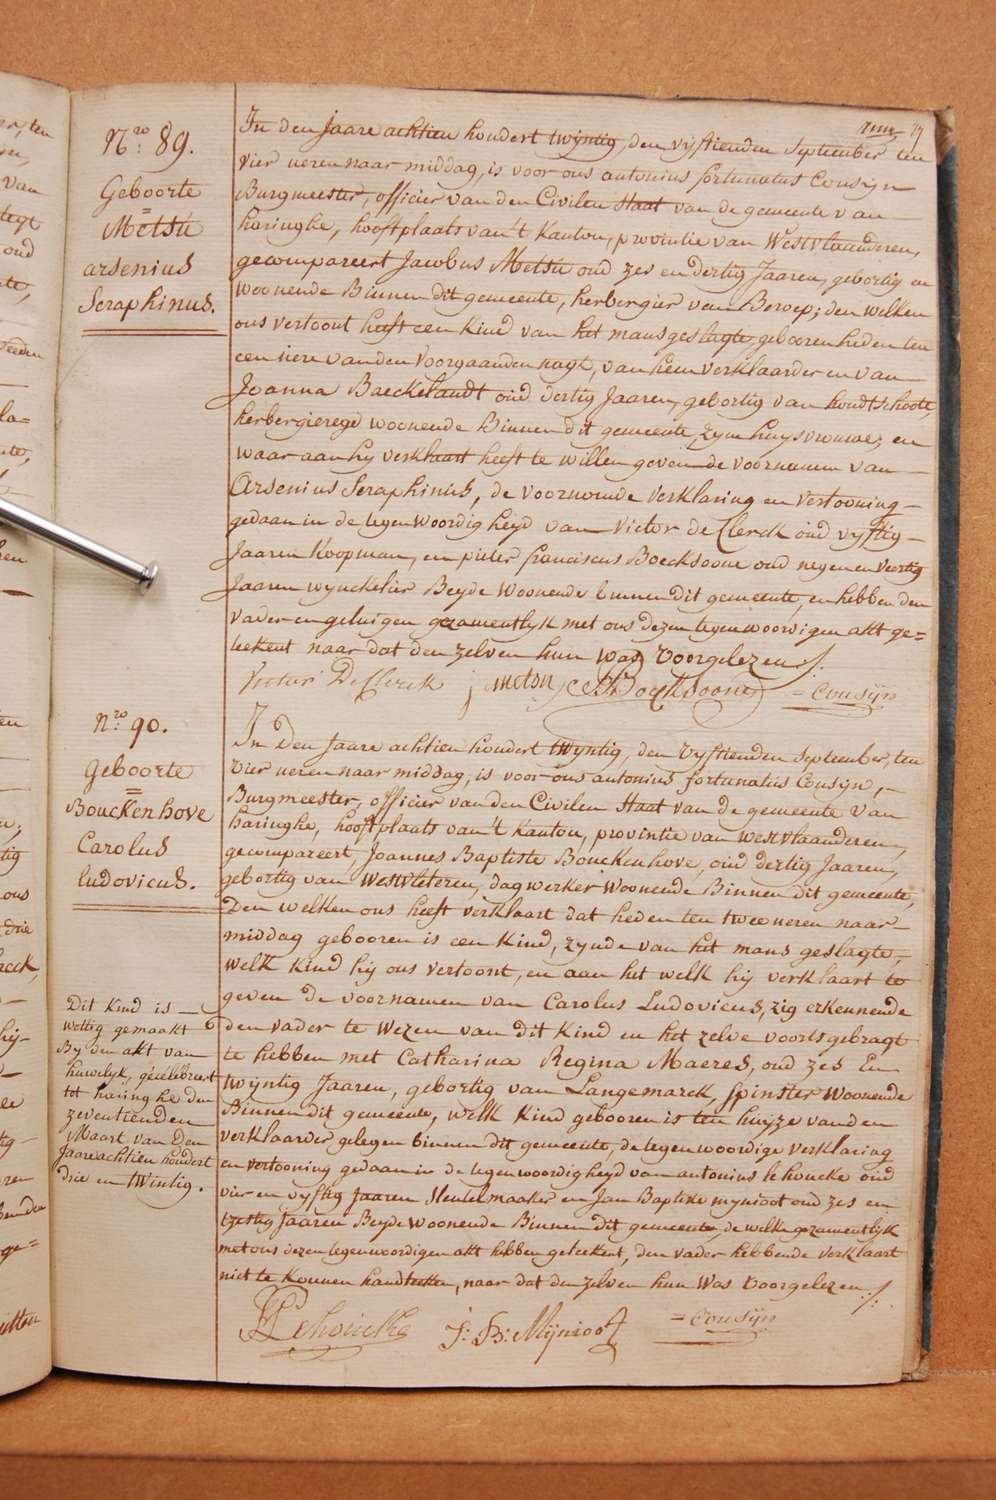 N.ro 89.
Geboorte
=
Metsu
arsenius
Seraphinus.
In den Jaare achtien hondert twijntig, den vyftienden September ten
vier ueren naar middag, is voor ons antonius fortunatus Cousijn
Burgmeester, officier van den Civilen Staat van de gemeente van
haringhe, hooftplaats van 't Kanton, provintie van Westvlaanderen,
gecompareert Jacobus Metsu oud zes en dertig Jaaren, gebortig en
woonende Binnen dit gemeente, herbergier van Beroep; den welken
ons vertoont heeft een kind van het mans geslagte, gebooren heden ten
een uere van den voorgaanden nagt, van hem verklaarder en van
Joanna Baeckelandt oud dertig Jaaren, gebortig van hondtschoote,
herbergierege woonende Binnen dit gemeente, zyne huysvrouwe; en
waar aan hy verklaart heeft te willen geven de voornamen van
Arsenius Seraphinus, de voornoemde verklaring en vertooning
gedaan in de tegenwoordigheyd van Victor de Clerck oud vyftig
Jaaren Koopman, en pieter franciscus Boecksoone oud negen en veertig
Jaaren wynckelier Beyde woonende binnen dit gemeente, en hebben den
vader en getuigen gezamentlyk met ons dezen tegenwoordigen akt ge=
teekent naar dat den zelven hun was voorgelezen ./.
Victor DeClerck j metsu PF Boecksoone = Cousijn
n.ro 90.
Geboorte
=
Bouckenhove
Carolus
ludovicus.
In Den Jaare achtien hondert twijntig, den vyftienden September, ten
vier ueren naar middag, is voor ons antonius fortunatus Cousijn,
Burgmeester, officier van den Civilen Staat van de gemeente van
haringhe, hooftplaats van 't Kanton, provintie van Westvlaanderen,
gecompareert, Joannes Baptiste Bouckenhove, oud dertig Jaaren,
gebortig van Westvleteren, dagwerker woonende Binnen dit gemeente,
Den welken ons heeft verklaart dat heden ten twee ueren naar
middag gebooren is een kind, zynde van het mans geslagte,
welk kind hij ons vertoont, en aan het welk hij verklaart te
geven de voornamen van Carolus Ludovicus, zig erkennende
den vader te wezen van dit kind en het zelve voorts gebragt
te hebben met Catharina Regina Maeres, oud zes en
twijntig Jaaren, gebortig van Langemarck, Spinster woonende
Binnen dit gemeente, welk kind gebooren is ten huijze van den
verklaarder gelegen binnen dit gemeente, de tegenwoordige verklaring
en vertooning gedaan in de tegenwoordigheyd van antonius lehoucke oud
vier en vyftig Jaaren Sleutelmaaker en Jan Baptiste mynioot oud zes en
tzestig Jaaren Beyde woonende Binnen dit gemeente, de welke gezamentlyk
met ons dezen tegenwoordigen akt hebben geteekent, den vader hebbende verklaart
niet te konnen handteeken, naar dat den zelven hun was voorgelezen ./.
Dit kind is
wettig gemaakt
By den akt van
huwelyk, gecelebreert
tot haringhe den
zeventienden
Maart van den
Jaare achtien hondert
drie en twintig.
Lehoucke J: B: Mijnioot = Cousijn